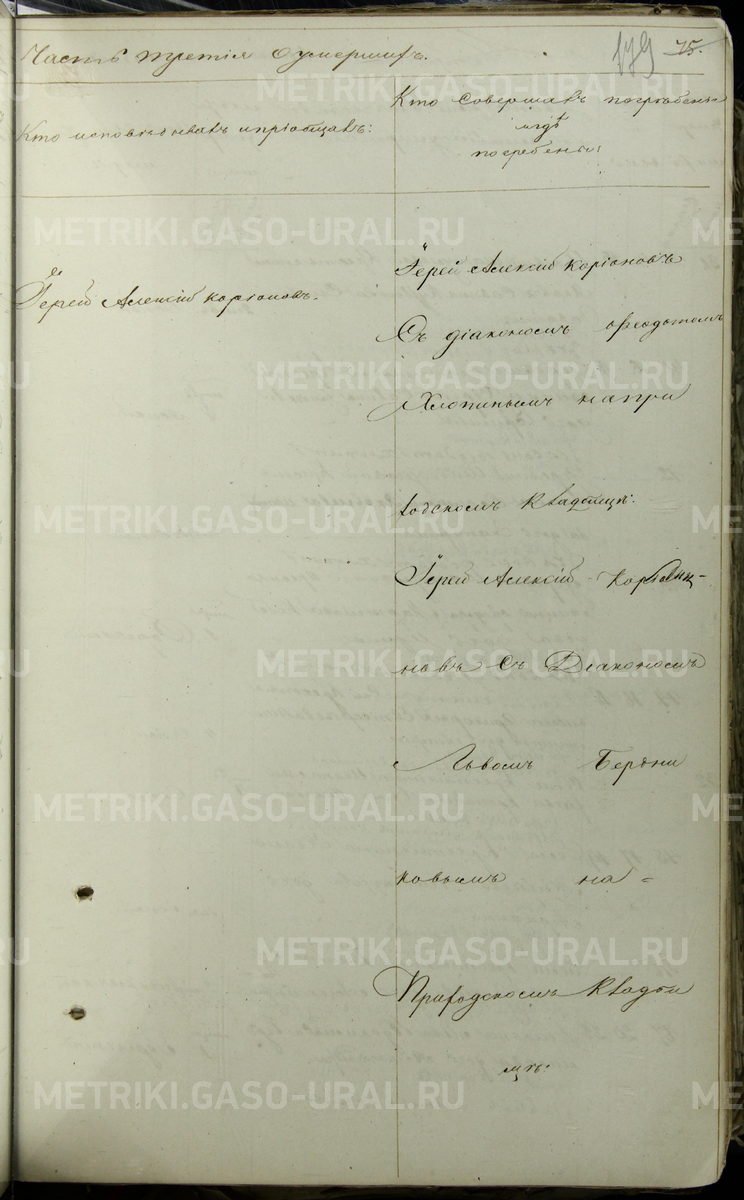 Часть третія о умершихъ.
75.
Кто исповѣдывалъ и пріобщалъ:
Кто совершалъ погребеніе
и гдѣ
погребены:
Іерей Алексій Каріоновъ.
Іерей Алексій Каріоновъ
Съ діакономъ Ѳеодотомъ
Хлопинымъ на при
ходскомъ кладбищѣ.
Іерей Алексій
новъ съ Діакономъ
Львомъ
ковымъ на=
Приходскомъ Кладби
щѣ.
METRIKI.GASO-URAL.RU